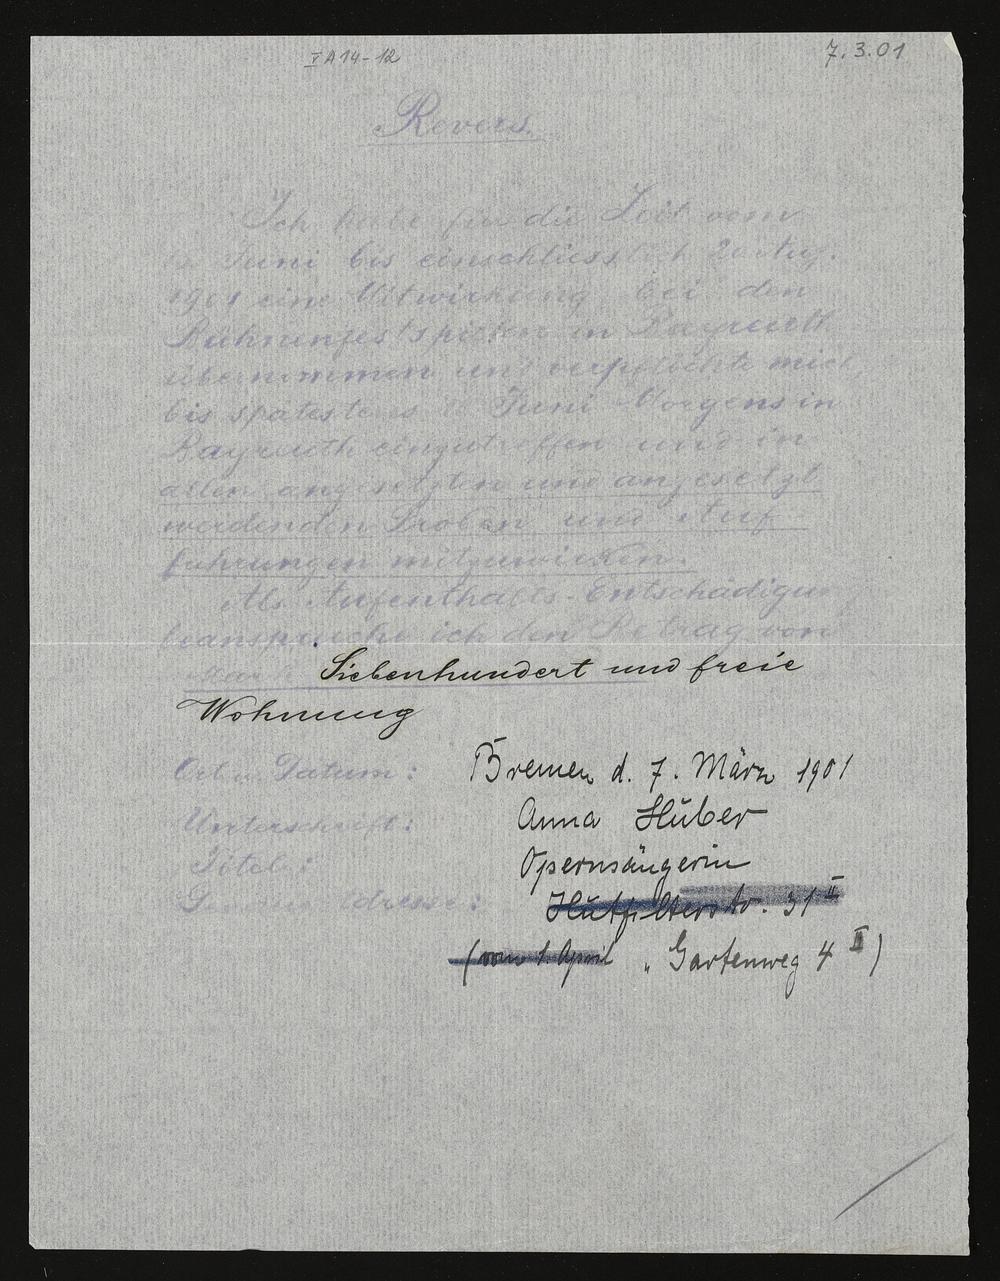 V A 14-12
7.3.01
Revers.
Ich habe für die Zeit vom
Juni bis einschliesslich 20 Aug.
1901 eine Mitwirkung bei den
Bühnenfestspielen in Bayreuth
übernommen und verpflichte mich,
bis spätestens Juni Morgens in
Bayreuth einzutreffen und in
allen angesetzten und angesetzt
werdenden Proben und Auf-
führungen mitzuwirken.
Als Aufenthalts-Entschädigung
beanspruche ich den Betrag von
Mark Siebenhundert und freie
Wohnung
Ort u. Datum: Bremen d. 7. März 1901
Unterschrift: Anna Hüber
Titel: Opernsängerin
Adresse: Hutfilterstr. 31 II
(vom 1. April „ Gartenweg 4 II)